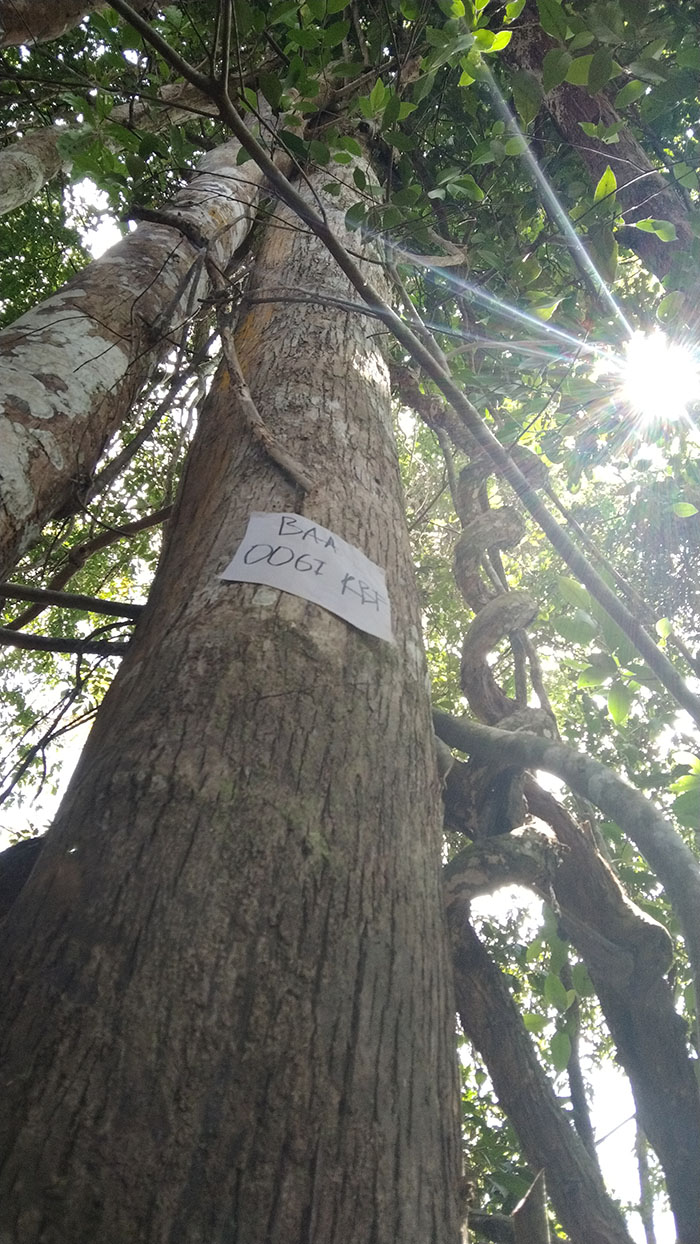 BAA
0067 KBF